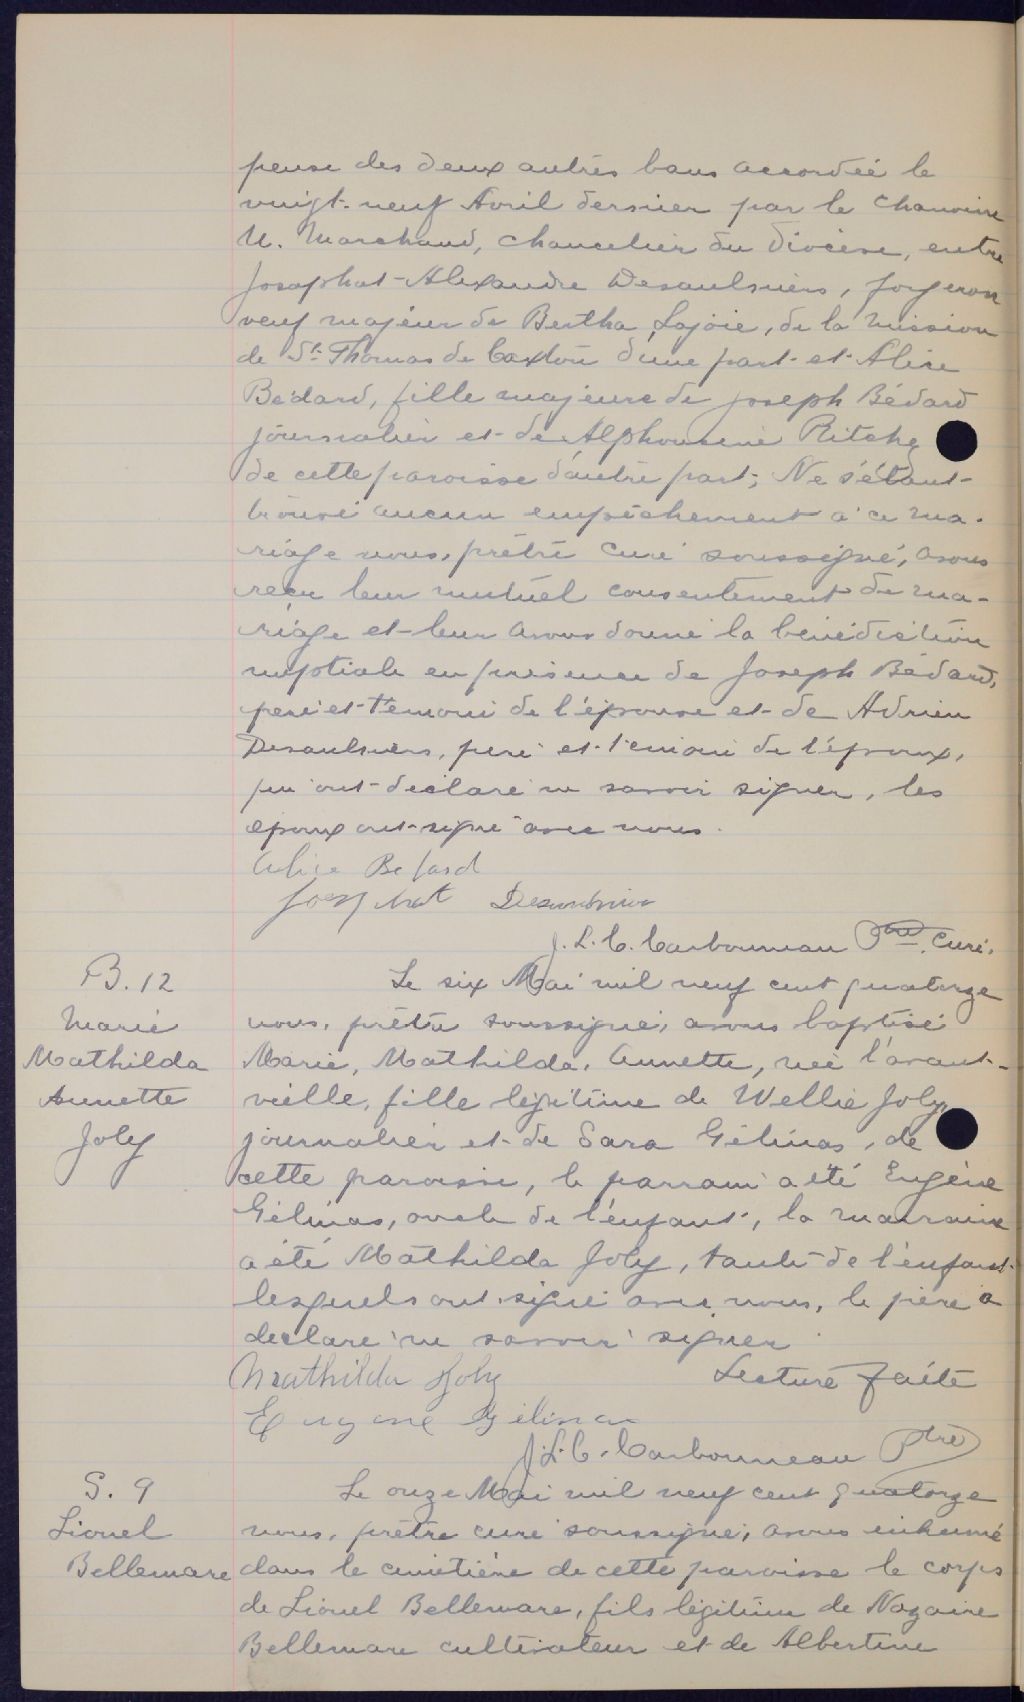 pense des deux autres bans accordée le
vingt-neuf Avril dernier par le Chanoine
U. Marchand, Chancelier du Diocèse, entre
Josaphat-Alexandre Desaulniers, forgeron
veuf majeur de Bertha Lajoie, de la Mission
de St. Thomas de Caxton d'une part et Alice
Bédard, fille majeure de Joseph Bédard
journalier et de Alphonsine Ritchy
de cette paroisse d'autre part; Ne s'étant
trouvé aucun empêchement à ce ma-
riage nous, prêtre curé soussigné, avons
reçu leur mutuel consentement de ma-
riage et leur avons donné la bénédiction
nuptiale en présence de Joseph Bédard,
père et témoin de l'épouse et de Adrien
Desaulniers, père et témoin de l'époux,
qui ont déclaré ne savoir signer, les
époux ont signé avec nous.
Alice Bedard
Josaphat Desaulniers
J. L. C. Carbonneau Ptre Curé.
B. 12
Marie
Mathilda
Annette
Joly
Le six Mai mil neuf cent quatorze
nous, prêtre soussigné, avons baptisé
Marie, Mathilda, Annette, née l'avant-
veille, fille légitime de Wellie Joly
journalier et de Sara Gélinas, de
cette paroisse, le parrain a été Eugène
Gélinas, oncle de l'enfant, la marraine
a été Mathilda Joly, tante de l'enfant
lesquels ont signé avec nous, le père a
déclaré ne savoir signer
Lecture faite
Mathilda Joly
Eugene Gelinas
J. L. C. Carbonneau Ptre
S. 9
Lionel
Bellemare
Le onze Mai mil neuf cent quatorze
nous, prêtre curé soussigné, avons inhumé
dans le cimetière de cette paroisse le corps
de Lionel Bellemare, fils légitime de Nazaire
Bellemare cultivateur et de Albertine